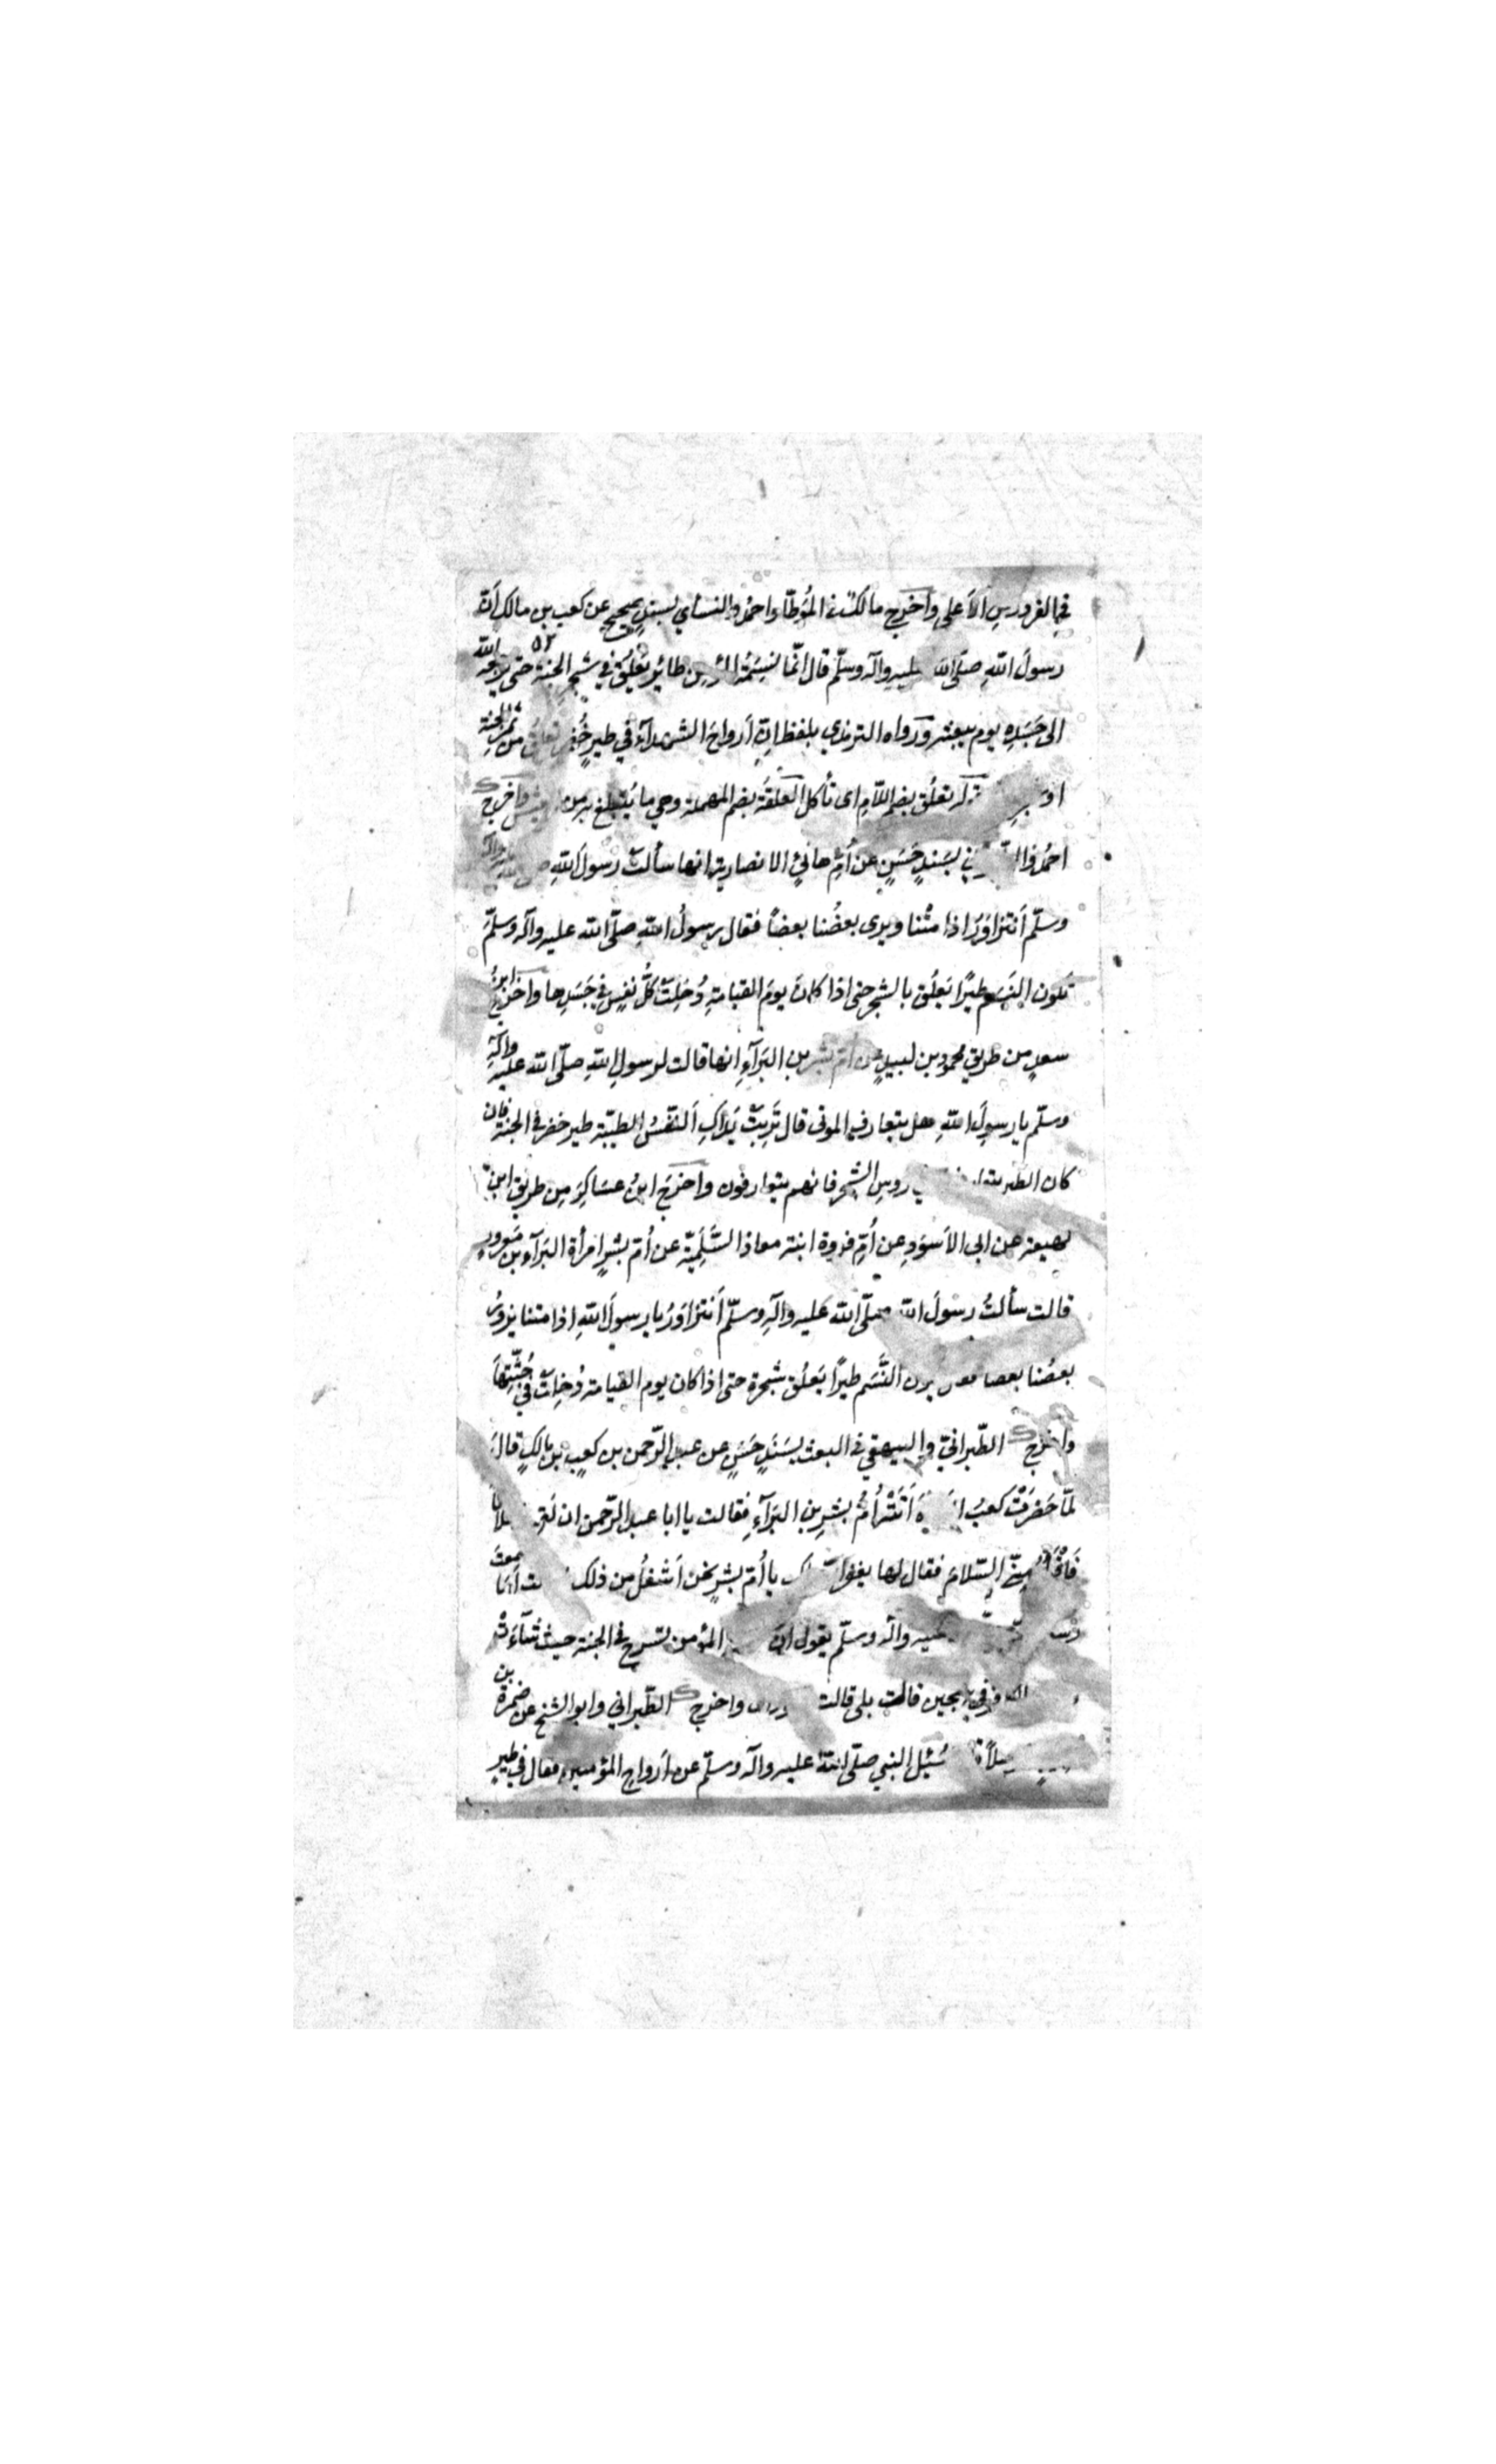 في الفردوسِ الأعلى وأخرج مالك في المُوطّأ واحمدُ والنسائي بسندٍ صحيحٍ عن كعب بن مالك أنّ
رسولَ اللهِ صلّى الله عليه وآله وسلّم قال انّما نَسَمَةُ المؤمن طائرٌ تَعلُقُ في شجرِ الجنة حتى يرجعه الله
الى جَسَدِه يوم يبعثه ورواه الترمذي بلفظ انّ أرواحَ الشهدآءِ في طيرٍ خُضْرٍ تعلُقُ من ثمر الجنةِ
او قوله تعلُق بضم اللّامِ اى تأكل العُلقَةَ بضم المهملة وهي ما يُتبلّغ به من العيش وأخرج
احمدُ والطّبراني بسندٍ حَسَنٍ عن أمِّ هانئٍ الانصارية انها سألتْ رسُولَ اللهِ صلى الله عليه وآله
وسلّم أَنتزاوَرُ اذا متْنا ويرى بعضُنا بعضاً فقال رسولُ اللهِ صلّى الله عليه وآله وسلّمَ
تكون النَسَم طيرًا يَعلُق بالشجر حتى اذا كانَ يومُ القيامةِ دُخلتْ كلُّ نفسٍ في جَسَدِها واخرج ابنُ
سعدٍ من طريق محمود بن لبيدٍ عن أمّ بشر بن البَرَآءِ انها قالت لرسولِ اللهِ صلّى الله عليه وآلهِ
وسلّم يا رسولَ اللهِ هل يتعارف الموتى قال تَرِبتْ يَدَاكِ اَلنّفسُ الطيّبة طير خضر في الجنة فان
كان الطير يتعارفون في روسِ الشجر فانهم يتعارفون واخرَجَ ابنُ عسَاكِرَ مِن طريق ابن
لهيعة عن ابى الاَسْوَدِ عن أُمّ فروة ابنة معاذ السَّلَمِيّة عن أمّ بشرٍ امرأة البَرَآءِ بن مَعرورٍ
قالت سألتُ رسولَ الله صلّى الله عَليه وآلهِ وسلّم أَنتزاوَرُ يا رسولَ اللهِ اذا متنا يزورُ
بعضُنا بعضا فقال يكون النَّسَم طيرًا يَعلُق شجرة حتى اذا كان يوم القيامة دُخلتْ في جُثّتِها
واخرج الطّبرانيّ والبيهقي في البعث بسَندٍ حَسَنٍ عن عبد الرّحمن بن كعبٍ بن مالكٍ قالَ
لمّا حَضرَتْ كعبَ الوفاةُ أَتَتْهُ أمُّ بشرِ بن البَرَآءِ فقالت يا ابا عبد الرّحمن ان لَقيتَ فلانا
فَاقْرَأْهُ منّي السّلامَ فقال لها يغفر الله لكِ يا أُمّ بشرٍ نحن أَشغلُ من ذلك فقالت أمَا سمعتَ
رسول الله صلّى الله عليه وآله وسلّم يقول انّ نسمة المؤمن تسرح في الجنة حيث شآءَتْ
ونسمة الكافر في سجين قالَت بلى قالت هو ذلك واخرج الطّبراني وابو الشيخ عن ضمرة بن
حبيبٍ مرسلاً قال سُئِل النبي صلّى اللهُ عليه وآله وسلّم عن أرواحِ المؤمنين فقال في طيرٍ